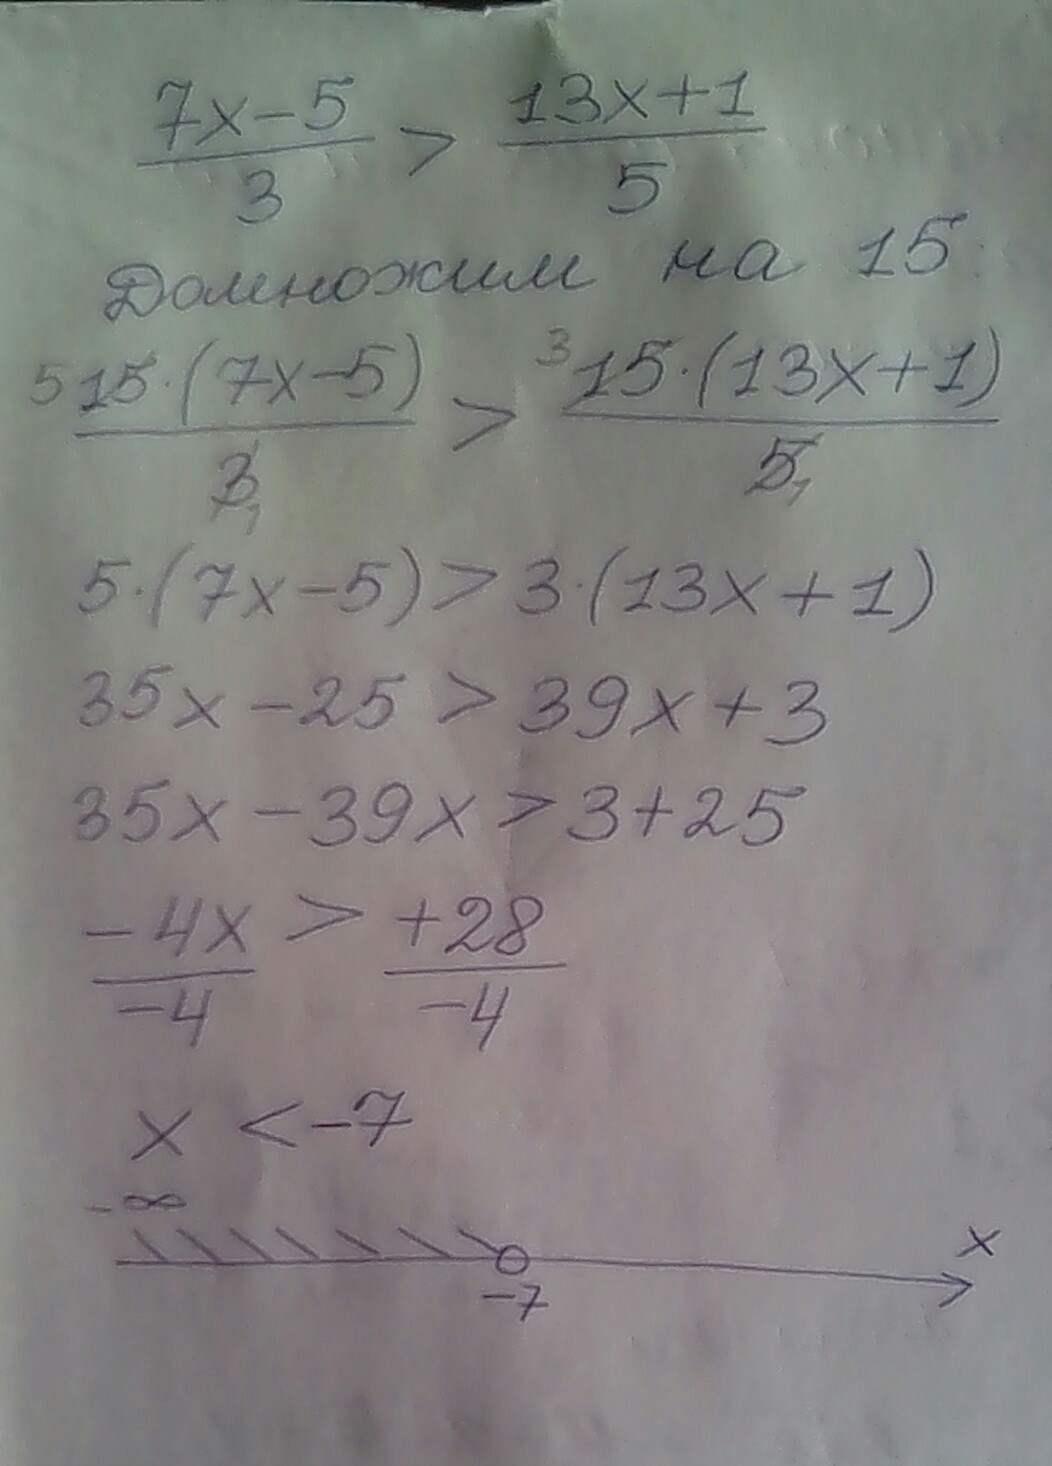 (7x-5)/3 > (13x+1)/5
Домножим на 15
5 15·(7x-5)/3 1 > 3 15·(13x+1)/5 1
5·(7x-5)>3·(13x+1)
35x-25>39x+3
35x-39x>3+25
-4x/-4 > +28/-4
x <-7
-∞
x
-7